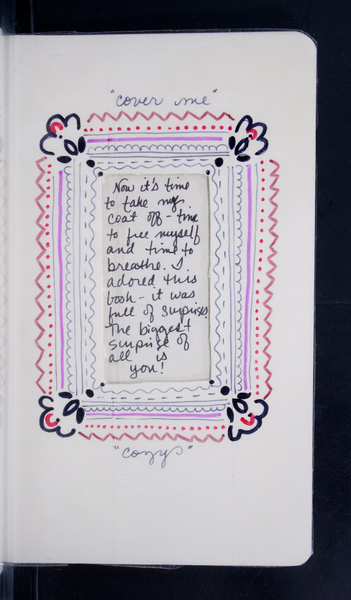 "cover me"
Now it's time
to take my
coat off - time
to free myself
and time to
breathe. I
adored this
book - it was
full of surprises.
The biggest
surprise of
all is
you!
"cozy"